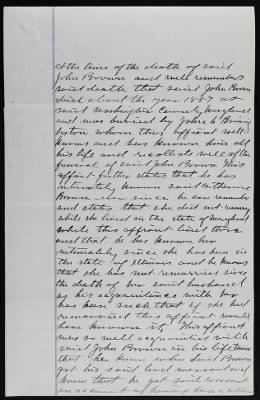 at the time of the death of said
John Brown and well remembers
said death that said John Brown
died about the year 1827 at
said Washington County Maryland
and was buried by John
whom this affiant well
knows and has known him all
his life and recollects well of the
funeral of said John Brown. This
affiant further states that he has
intimately known said Catherine
Brown ever since he can remember
and states that she did not remarry
while she lived in the state of Maryland
while this affiant lived there
and that he has known her
intimately since she has been in
the state of Illinois and he knows
that she has not remarried since
the death of her said husband
as his acquaintance with her
has been such that if she had
remarried this affiant would
have known it. This affiant
was so well acquainted with
said John Brown in his life time
that he knew when said Brown
got his said land warrant and
knows that he got said warrant
on account of having been a soldier